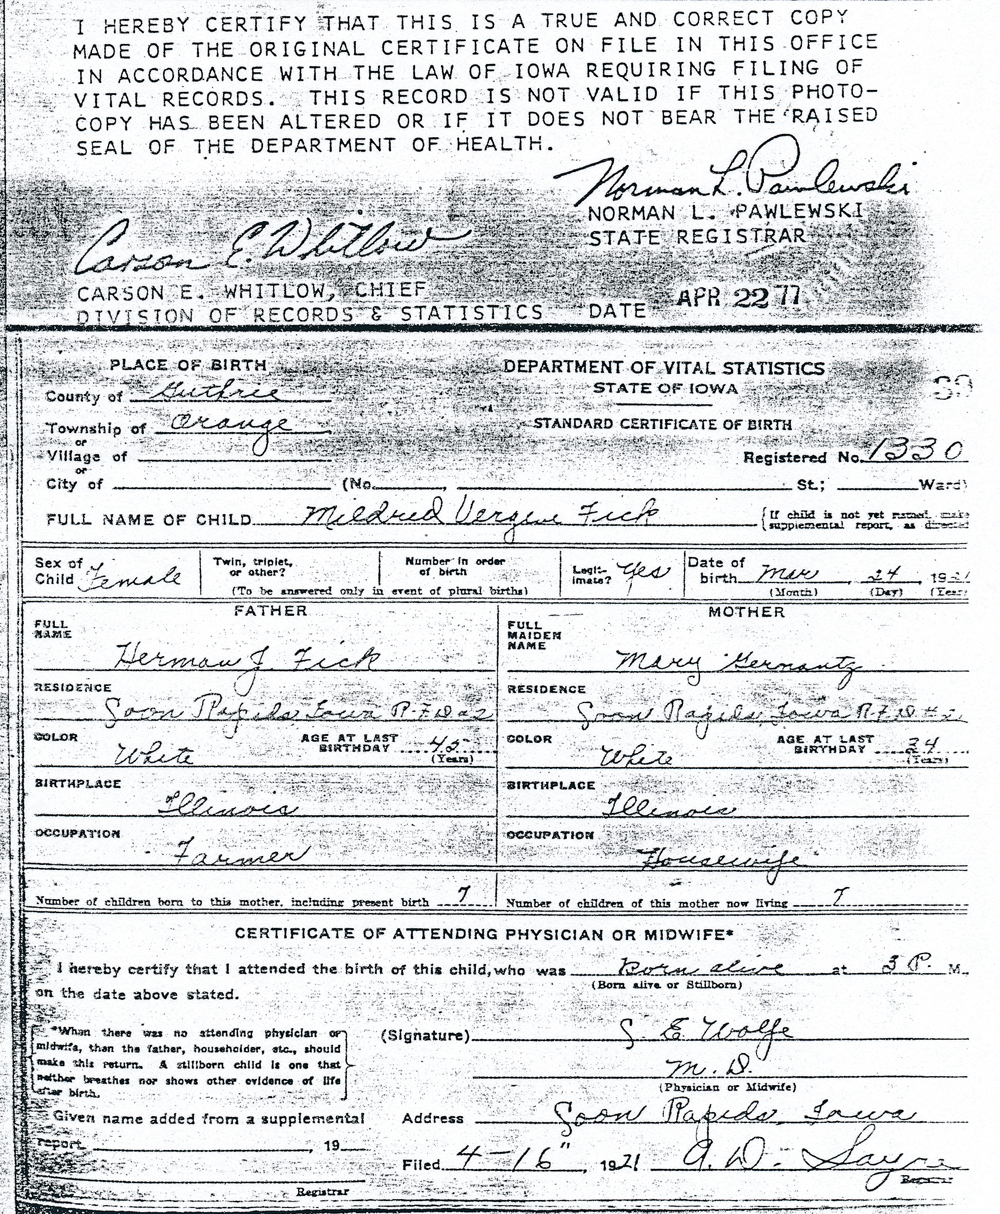 I HEREBY CERTIFY THAT THIS IS A TRUE AND CORRECT COPY
MADE OF THE ORIGINAL CERTIFICATE ON FILE IN THIS OFFICE
IN ACCORDANCE WITH THE LAW OF IOWA REQUIRING FILING OF
VITAL RECORDS. THIS RECORD IS NOT VALID IF THIS PHOTO-
COPY HAS BEEN ALTERED OR IF IT DOES NOT BEAR THE RAISED
SEAL OF THE DEPARTMENT OF HEALTH.
Norman L. Pawlewski
NORMAN L. PAWLEWSKI
STATE REGISTRAR
Carson E. Whitlow
CARSON E. WHITLOW, CHIEF
DIVISION OF RECORDS & STATISTICS DATE APR 22 77
PLACE OF BIRTH
County of Guthrie
Township of Orange
or
Village of
or
City of (No. , St.; Ward)
DEPARTMENT OF VITAL STATISTICS
STATE OF IOWA
STANDARD CERTIFICATE OF BIRTH
Registered No. 1330
FULL NAME OF CHILD Mildred Vergene Fick
{If child is not yet named, make
supplemental report, as directed
Sex of Child Female
Twin, triplet, or other?
Number in order of birth
(To be answered only in event of plural births)
Legitimate? Yes
Date of birth Mar 24, 1921
(Month) (Day) (Year)
FATHER
FULL NAME
Herman J. Fick
RESIDENCE
Coon Rapids Iowa R.F.D #2
COLOR White AGE AT LAST BIRTHDAY 45 (Years)
BIRTHPLACE
Illinois
OCCUPATION
Farmer
MOTHER
FULL MAIDEN NAME
Mary Gernantz
RESIDENCE
Coon Rapids, Iowa R.F.D #2
COLOR White AGE AT LAST BIRTHDAY 34 (Years)
BIRTHPLACE
Illinois
OCCUPATION
Housewife
Number of children born to this mother, including present birth 7
Number of children of this mother now living 7
CERTIFICATE OF ATTENDING PHYSICIAN OR MIDWIFE*
I hereby certify that I attended the birth of this child, who was Born alive at 3 P. M.
(Born alive or Stillborn)
on the date above stated.
*When there was no attending physician or
midwife, than the father, householder, etc., should
make this return. A stillborn child is one that
neither breathes nor shows other evidence of life
after birth.
(Signature) S. E. Wolfe
M. D.
(Physician or Midwife)
Given name added from a supplemental
report , 19
Registrar
Address Coon Rapids, Iowa
Filed 4-16", 1921 A. D. Sayre